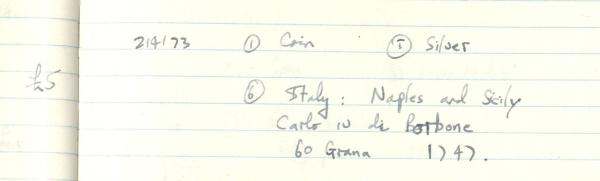 2/4/73 ① Coin Ⓘ Silver
£5
⑥ Italy: Naples and Sicily
Carlo IV di Borbone
60 Grana 1747.